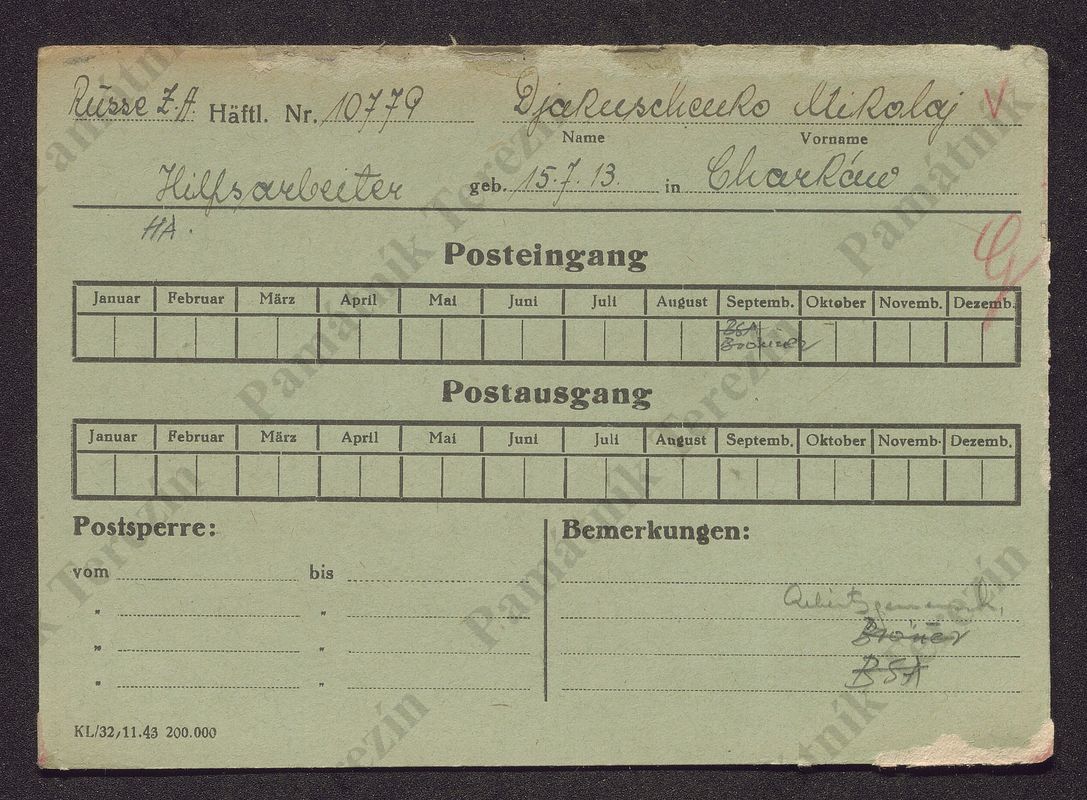 Russe Z.A. Häftl. Nr. 10779 Djakuschenko Mikolaj V
Name Vorname
Hilfsarbeiter geb. 15.7.13. in Charków
HA.
Posteingang
Januar Februar März April Mai Juni Juli August Septemb. Oktober Novemb. Dezemb.
BSA
Postausgang
Januar Februar März April Mai Juni Juli August Septemb. Oktober Novemb. Dezemb.
Postsperre: Bemerkungen:
vom bis
" "
" "
" "
BSA
KL/32, 11.43 200.000
Památník Terezín